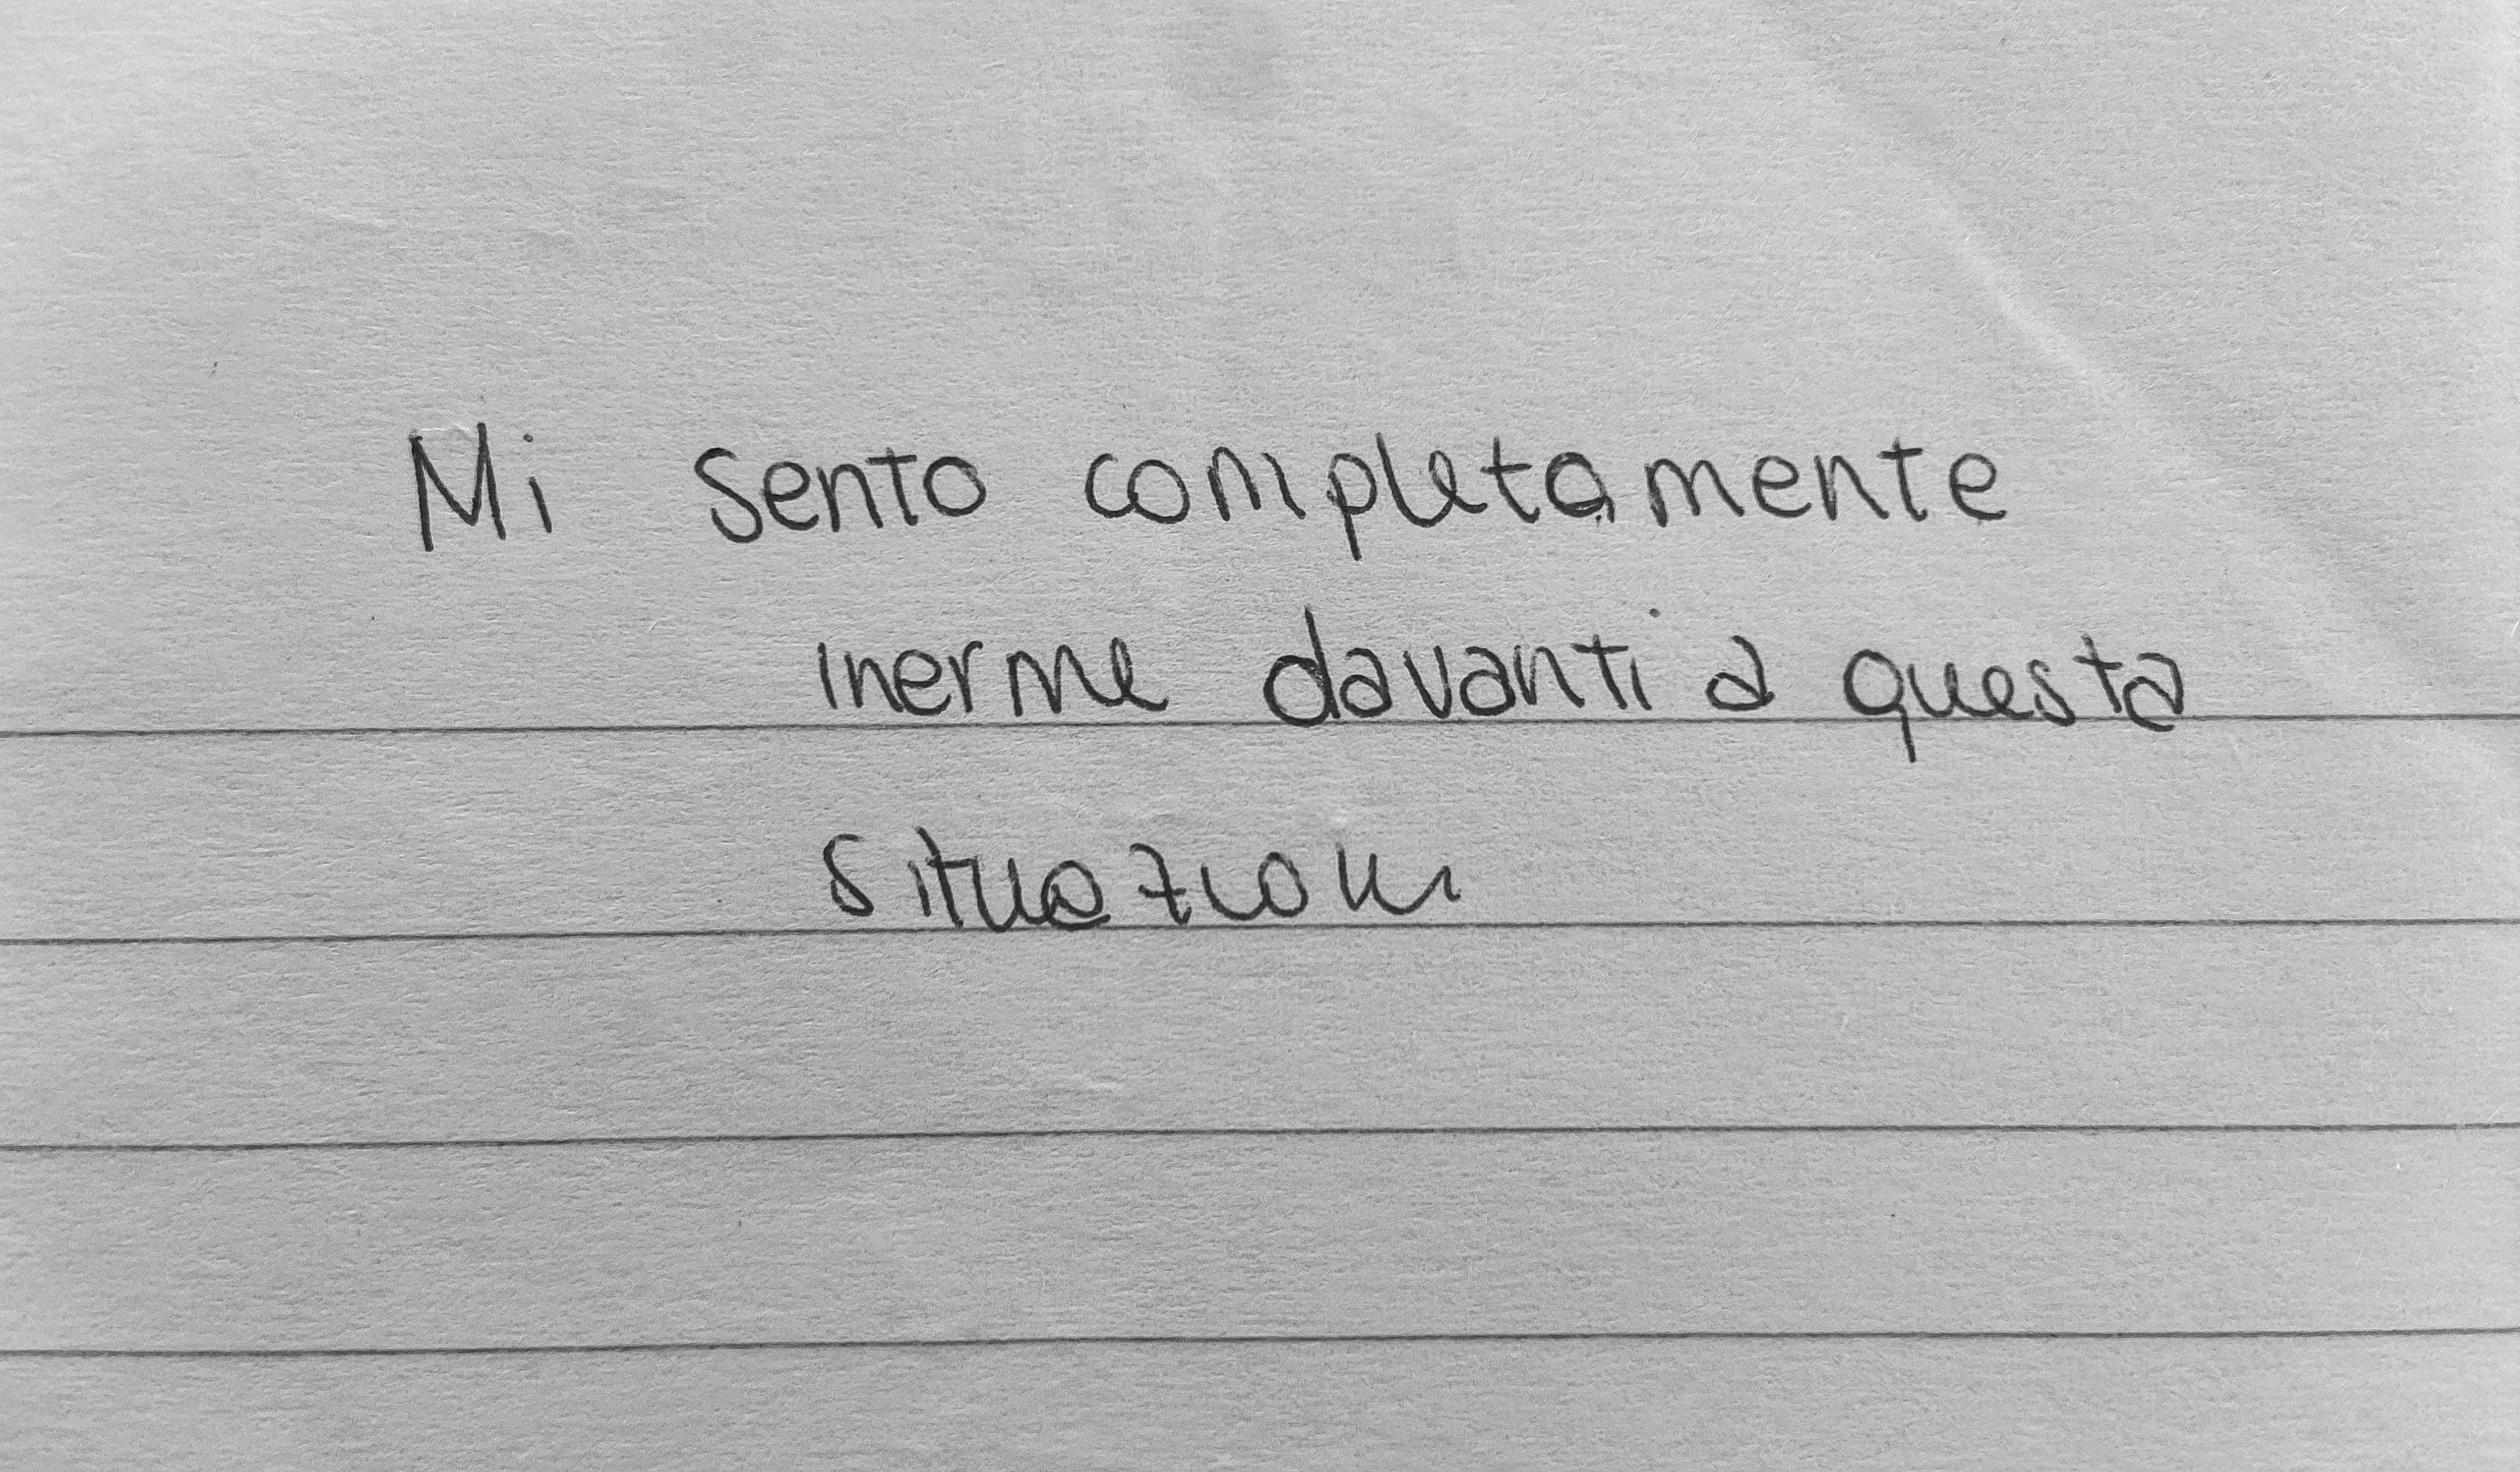 Mi sento completamente
inerme davanti a questa
situazione